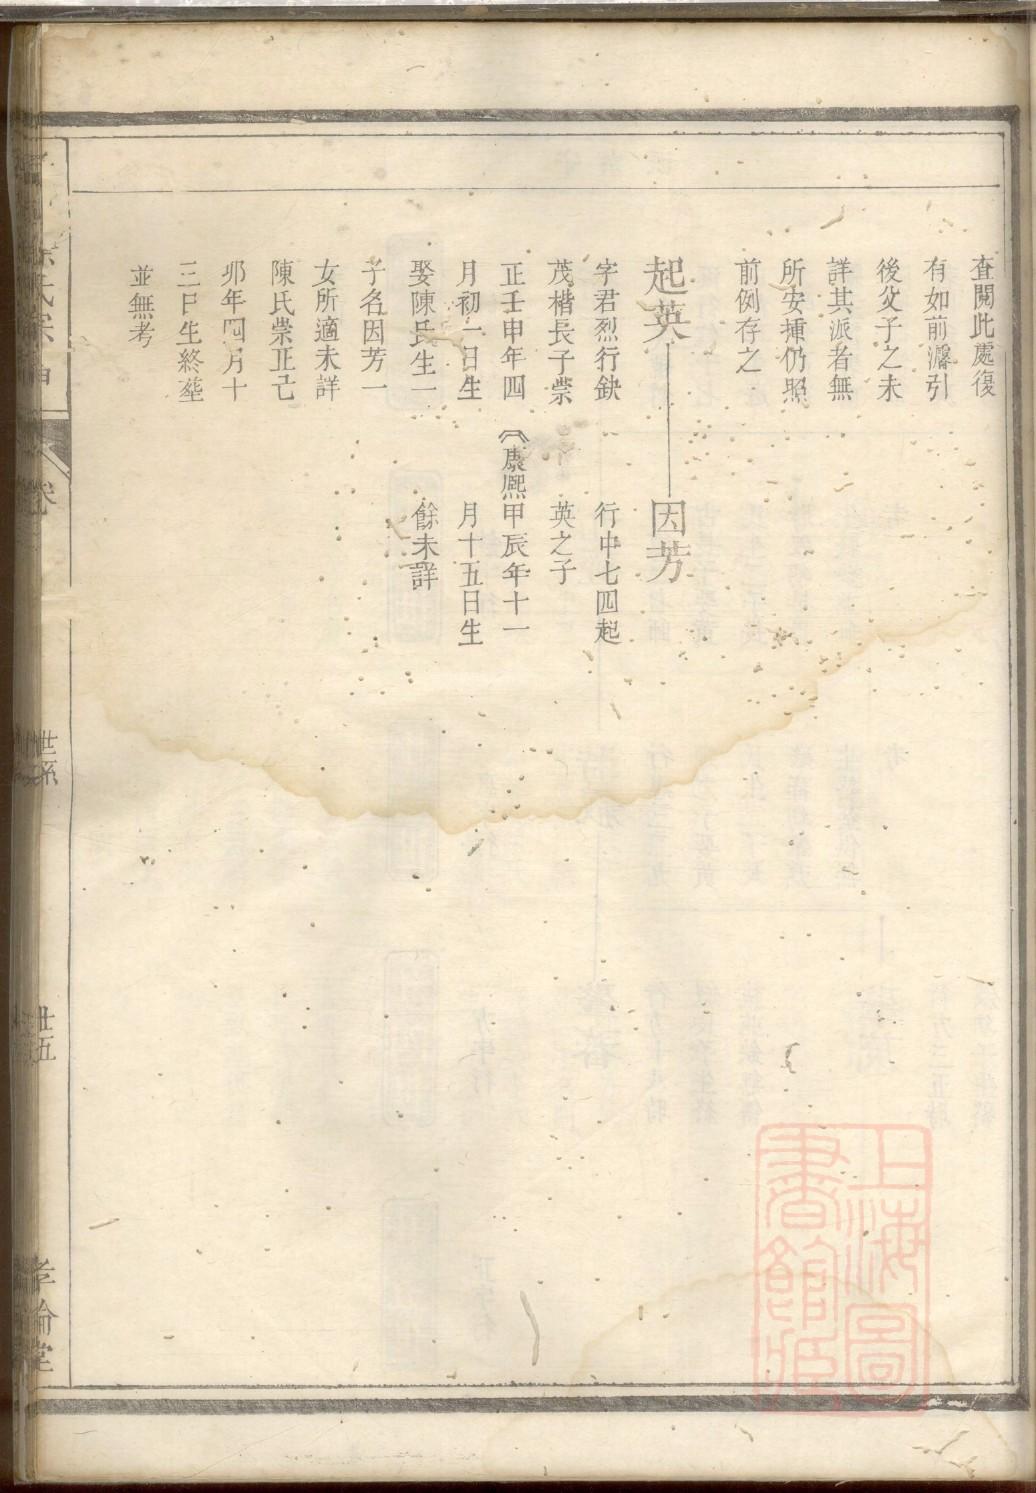 查閱此處復
有如前瀿引
後父子之未
詳其派者無
所安揷仍照
前例存之
起英
字君烈行鈌
茂楷長子崇
正壬申年四
月初一日生
娶陳氏生一
子名因芳一
女所適未詳
陳氏崇正己
夘年四月十
三日生終塟
並無考
因芳
行中七四起
英之子
康熙甲辰年十一
月十五日生
餘未詳
世系
卅五
孝倫堂
上海圖
書館藏